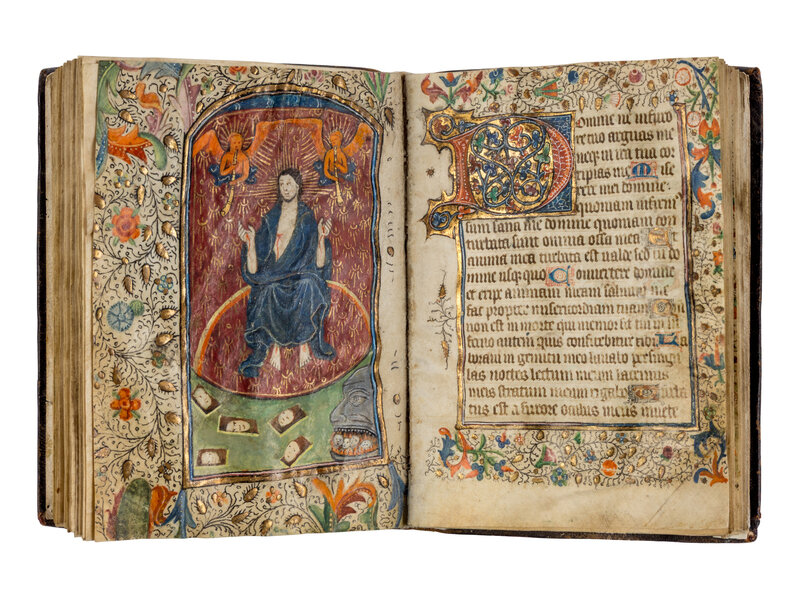 Domine ne in furo
re tuo arguas me
neqz in ira tua cor
ripias me Mise
rere mei domine
quoniam infirmus
sum sana me domine quoniam con
turbata sunt omnia ossa mea Et
anima mea turbata est valde sed tu do
mine usqz quo Convertere domine
et eripe animam meam salvum me
fac propter misericordiam tuam Qm
non est in morte qui memor sit tui in
ferno autem quis confitebitur tibi La
boravi in gemitu meo lavabo per singu
las noctes lectum meum lacrimis
meis stratum meum rigabo Turba
tus est a furore oculus meus invete